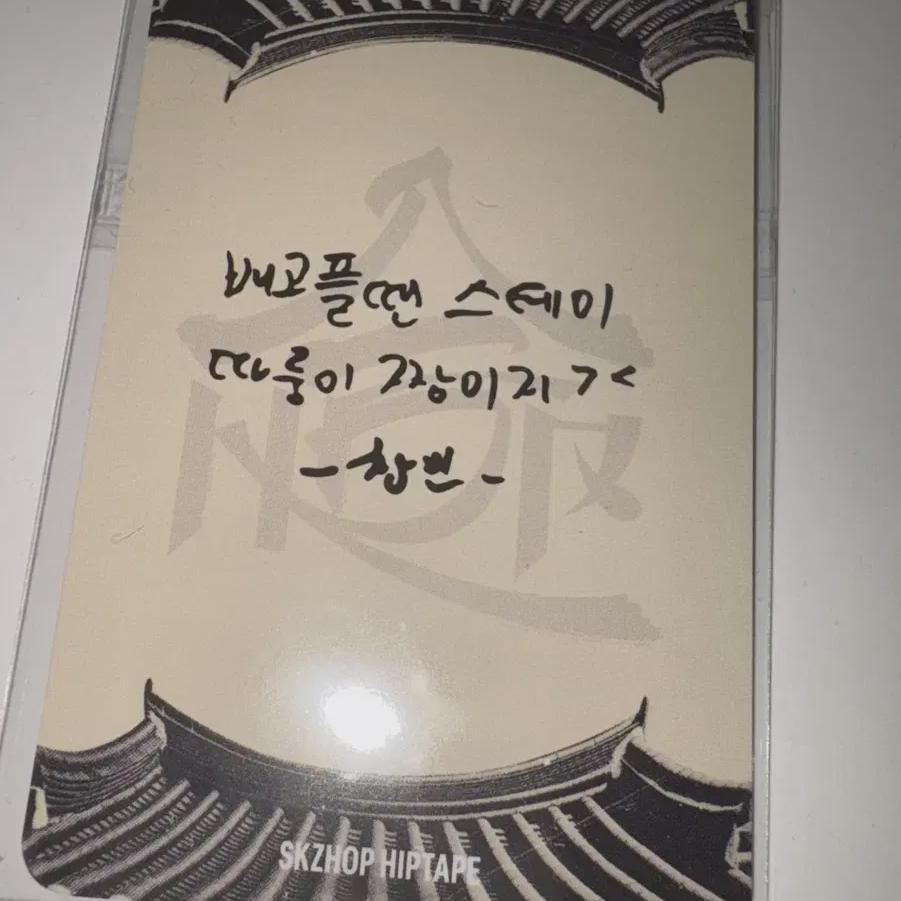 배고플땐 스테이
따룽이 짱이지 ><
- 창빈 -
SKZHOP HIPTAPE